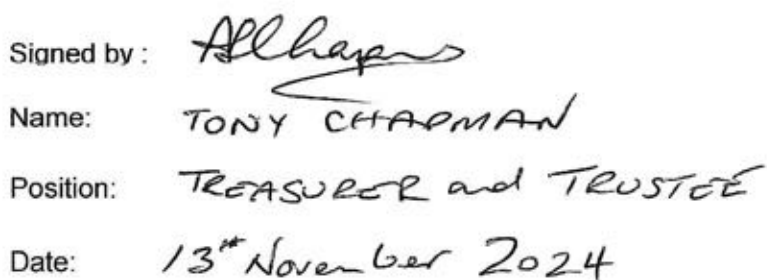 Signed by :
Name: TONY CHAPMAN
Position: TREASURER and TRUSTEE
Date: 13th November 2024